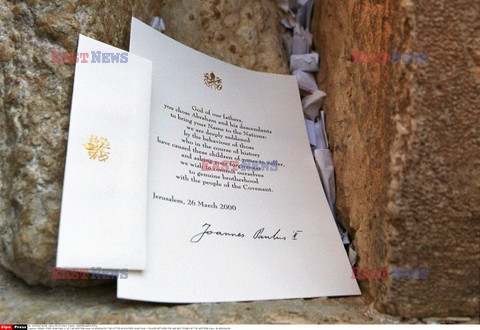 God of our fathers,
you chose Abraham and his descendants
to bring your Name to the Nations:
we are deeply saddened
by the behaviour of those
who in the course of history
have caused these children of yours to suffer,
and asking your forgiveness
we wish to commit ourselves
to genuine brotherhood
with the people of the Covenant.
Jerusalem, 26 March 2000
Joannes Paulus II
EAST NEWS
EAST NEWS
EAST NEWS
EAST NEWS
EAST NEWS
Sipa Press